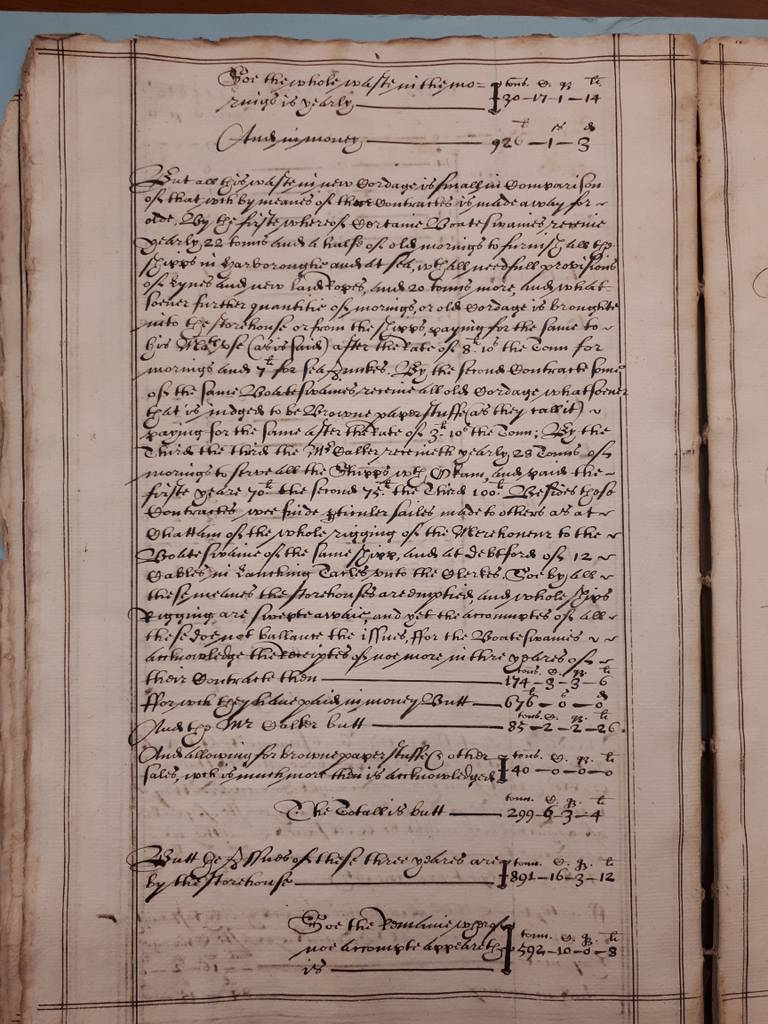 Soe the whole waste in the mo= tons. C. qr. li
rings is yearly 30-17-1-14
And in money 926-1-3
But all this waste in new Cordage is small in Comparison
of that wch by meanes of the Contractes is made away for
olde. By the firste whereof Certaine Boateswaines receive
yearly 22 tonns and a halfe of old morings to furnish all the
shipps in harboroughe and at sea, wth all needfull provisions
of Lynes and new land Ropes, and 20 tonns more, and what
soever further quantitie of morings, or old Cordage is broughte
into the storehouse or from the shipps, paying for the same to
his Matie use (as is said) after the Rate of 8li 10s the Tonn for
morings and 7li for sea. By the second Contracte some
of the same Boateswaines receive all old Cordage whatsoever
that is iudged to be Browne paper stuffe (as they call it)
paying for the same after the Rate of 3li 10s the Tonn; By the
Third the third the Mr Calker receiveth yearly 28 Tonns of
morings to serve all the Shipps wth Okam, and paid the
firste yeare 70li the second 75li the Third 100li. Besides those
Contractes wee finde pticuler sailes made to others as at
Chattam of the whole rigging of the Merehoneur to the
Boateswaine of the same shipp, and at debtford of 12
Cables in Tarles unto the Clerkes. Soe by all
these meanes the storehouses are emptied and whole ships
Rigging are swepte awaie, and yet the accomptes of all
these doe not ballance the issues, ffor the Boateswaines
acknowledge the receiptes of noe more in thre yeares of
their Contracte then tons. C. qr. li 174-3-3-6
ffor wch they have paid in money Butt 676-0-0
And the Mr Calker butt tons. C. qr. li 85-2-2-26.
And allowing for browne paper stuffe & other tons. C. qr. li
sales, wch is much more then is acknowledged 40-0-0-0
The Totall is butt tonn. C. qr. li 299-6-3-4
Butt the Issues of these three yeares are tonn. C. qr. li
by the storehouse 891-16-3-12
Soe the Remaine whereof
noe accompte appeareth tonn. C. qr. li 592-10-0-8
is